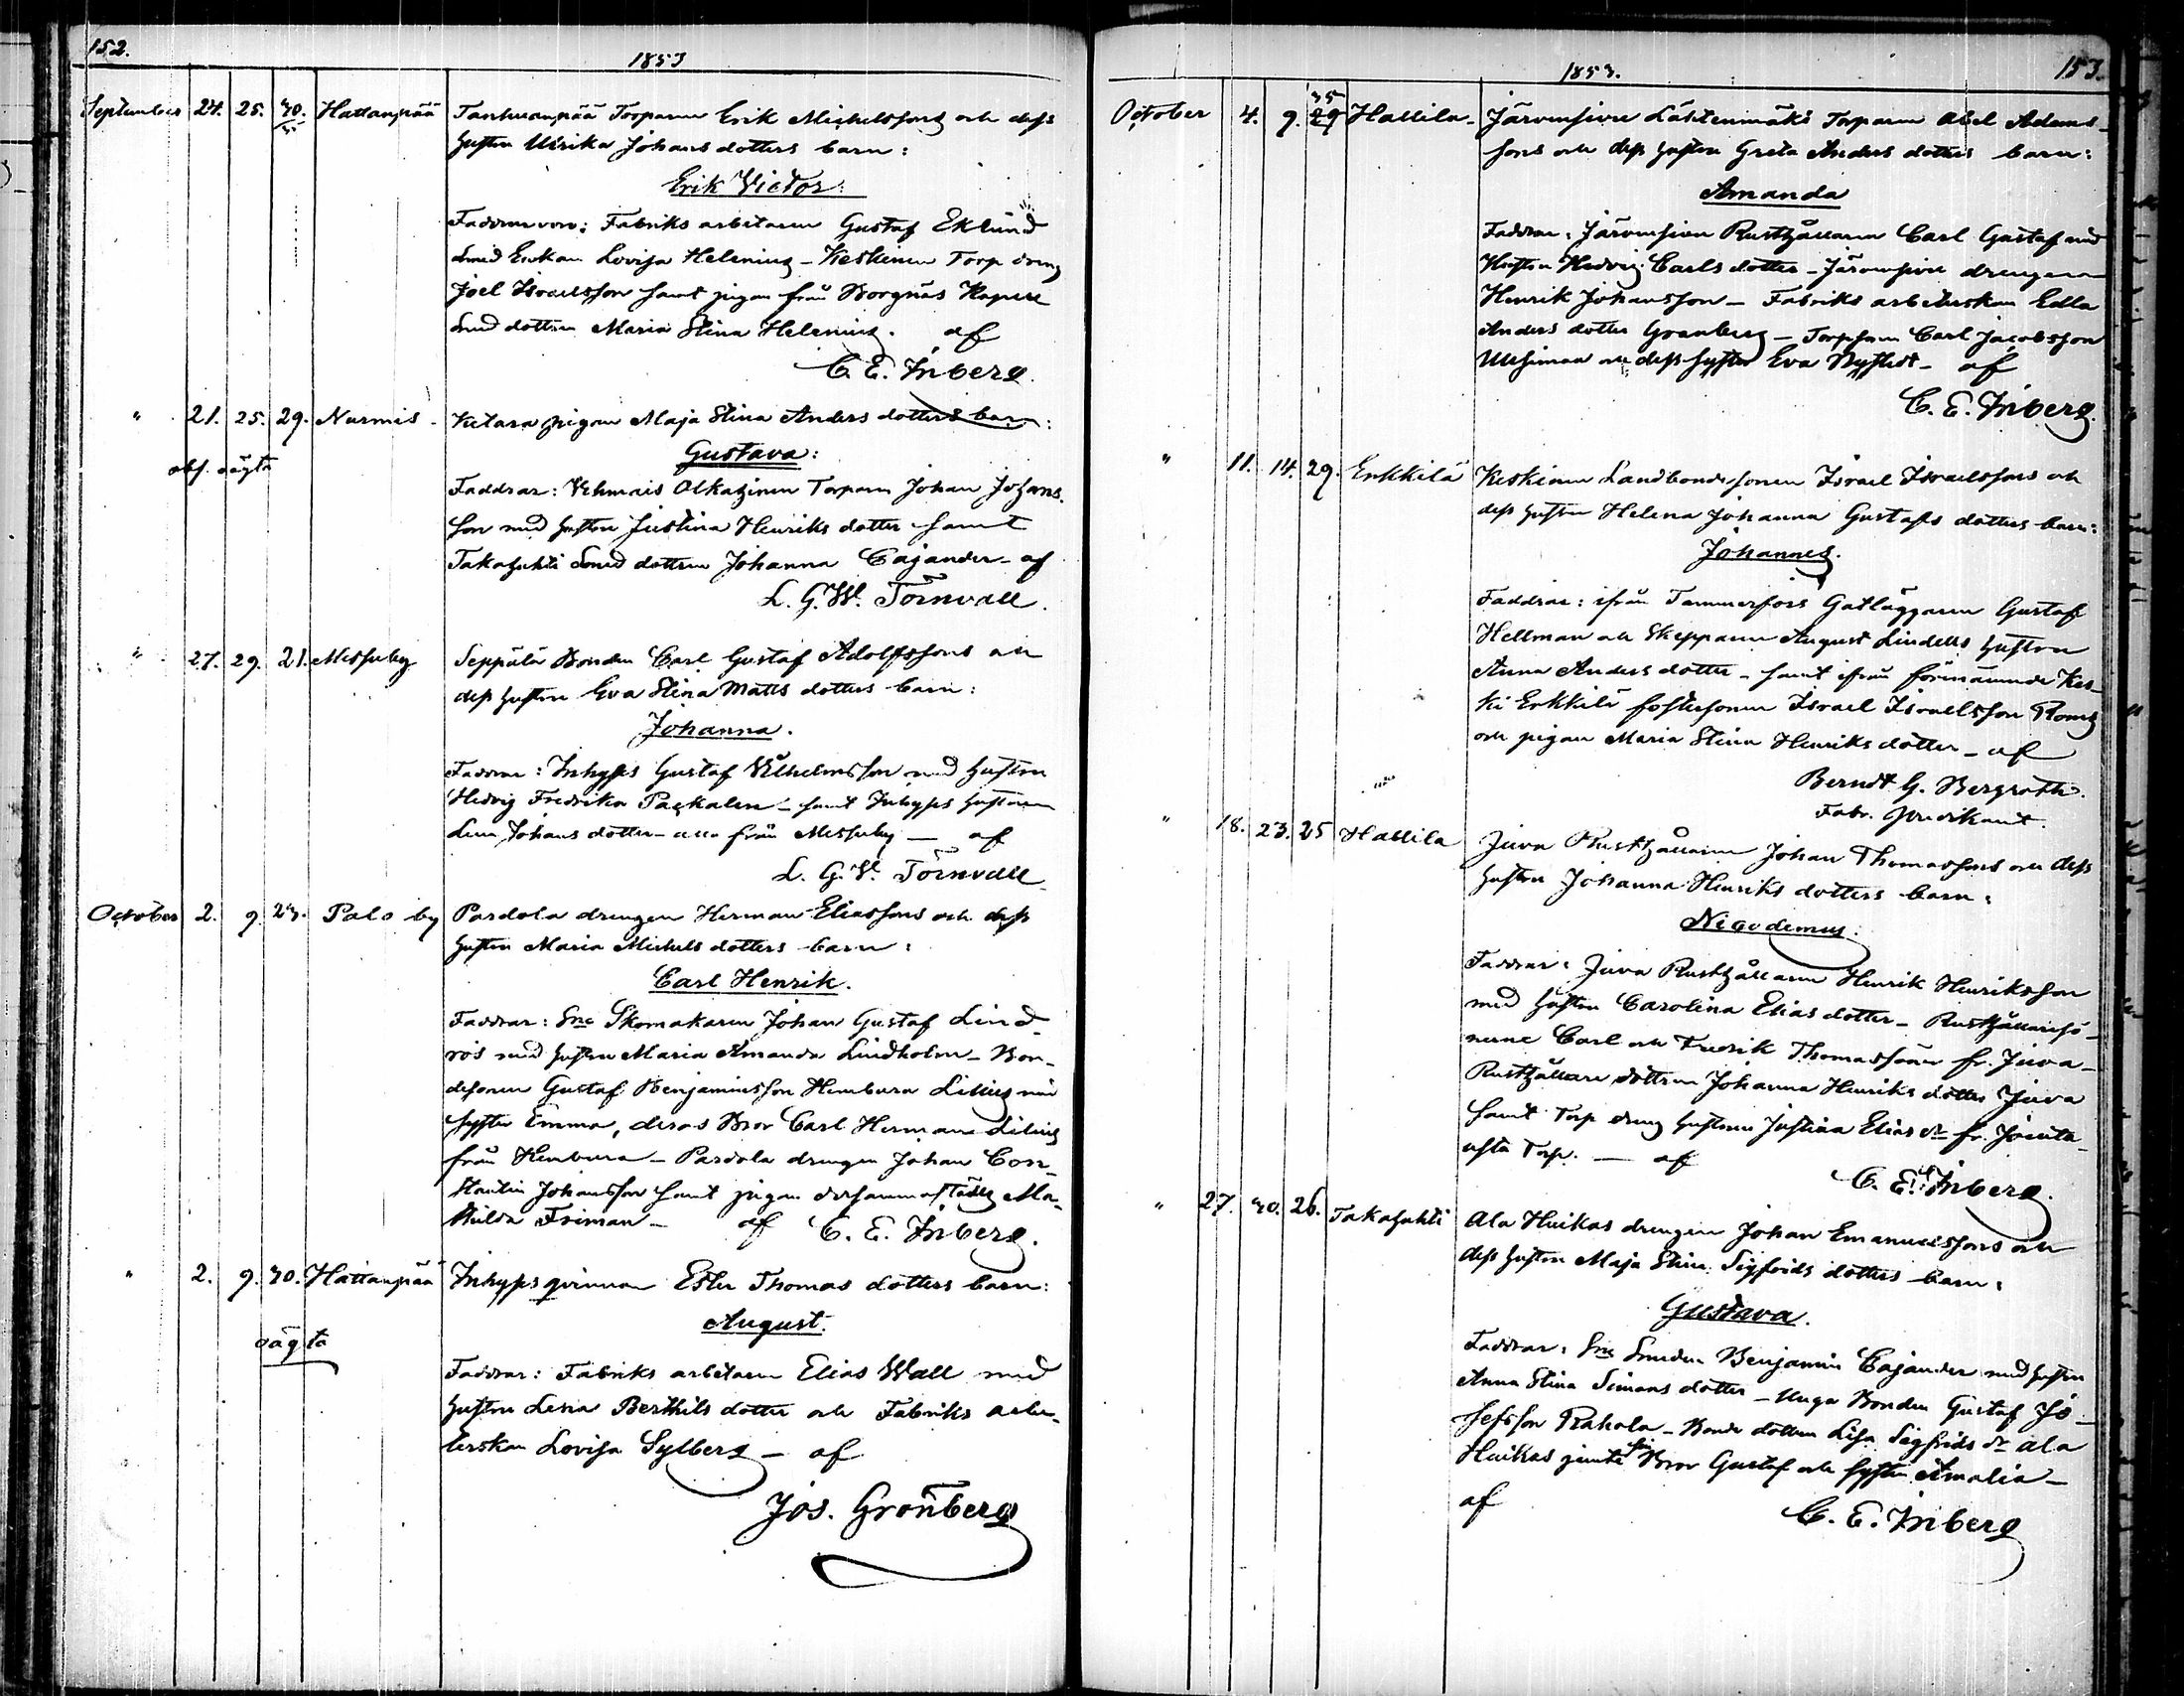 152.
1853
September 24. 25. 30. Hattanpää Tanhuanpää Torparen Erik Michelssons och dess
hustru Ulrika Johans dotters barn:
Erik Victor.
Faddrar voro: Fabriks arbetaren Gustaf Eklund
Smed Enkan Lovisa Helenius – Keskinen Torp dreng
Joel Israelsson samt pigan från Borgnäs Kapell
Smed dottren Maria Stina Helenius. af
C. E. Inberg.
" 21. 25. 29. Nurmis Ketara pigan Maja Stina Anders dotters barn:
oägta
Gustava:
Faddrar: Vehmais Alkahinen Torparen Johan Johans-
son med hustru Justina Henriks dotter samt
Takahuhti Smed dottren Johanna Cajander – af
L. G. W. Törnvall.
" 27. 29. 21. Messuby Seppälä Bonden Carl Gustaf Adolfssons och
dess hustru Eva Stina Matts dotters barn:
Johanna.
Faddrar: Inhyses Gustaf Wilhelmsson med hustru
Hedvig Fredrika Packalen – samt Inhyses hustrun
Lena Johans dotter – alla från Messuby — af
L. G. W. Törnvall
October 2. 9. 23. Palo by Pardola drengen Herman Eliassons och dess
hustru Maria Michels dotters barn:
Carl Henrik.
Faddrar: Sne Skomakaren Johan Gustaf Lind-
ros med hustru Maria Amanda Lindholm – Bon-
desonen Gustaf Benjaminsson Hembura Lilius med
syster Emma, deras Bror Carl Herman Lilius
från Hembura – Pardola drengen Johan Con-
stantin Johansson samt pigan dersammastädes Ma-
thilda Friman – af C. E. Inberg.
" 2. 9. 30. Hattanpää Inhyses qvinnan Ester Thomas dotters barn:
August.
oägta
Faddrar: Fabriks arbetaren Elias Wall med
hustru Lesia Berthils dotter och Fabriks arbe-
terskan Lovisa Sylberg – af
Jos. Grönberg
153.
1853.
October 4. 9. 35 29 Hallila – Järvensivu Lästenmäki Torparen Abel Adams-
sons och dess hustru Greta Anders dotters barn:
Amanda
Faddrar: Järvensivu Rusthållaren Carl Gustaf med
Hustru Hedvig Carls dotter – Järvensivu drengen
Henrik Johansson – Fabriks arbeterskan Edla
Anders dotter Granberg – Torpsonen Carl Jacobsson
Uusimaa och dess syster Eva Nystedt – af
C. E. Inberg.
" 11. 14. 29. Enkkilä Keskinen Landbondesonen Israel Israelssons och
dess hustru Helena Johanna Gustafs dotters barn:
Johannes.
Faddrar: ifrån Tammerfors Gatläggaren Gustaf
Hellman och Skepparen August Lindells hustru
Anna Anders dotter – samt ifrån förenämnde Kes-
ki Erkkilä fostersonen Israel Israelsson Roms
och pigan Maria Stina Henriks dotter – af
Berndt G. Bergroth.
Fabr. Predikant.
" 18. 23. 25 Hallila Juva Rusthållaren Johan Thomassons och dess
hustru Johanna Henriks dotters barn:
Nicodemus.
Faddrar: Juva Rusthållaren Henrik Henriksson
med hustru Carolina Elias dotter – Rusthållaresö-
nerne Carl och Fredrik Thomassöner fr. Juva –
Rusthållare dottren Johanna Henriks dotter Juva
samt Torp dreng hustrun Justina Elias dr fr. Jouta-
usta Torp. — af
C. E. Inberg.
" 27. 30. 26. Takahuhti Ala Huikas drengen Johan Emanuelssons och
dess hustru Maja Stina Sigfrids dotters barn:
Gustava.
Faddrar: Sne Smeden Benjamin Cajander med hustru
Anna Stina Simons dotter – Unga Bonden Gustaf Jo-
sefsson Rahola – Bonde dottren Lisa Sigfrids dr Ala
Huikas jemte sin Bror Gustaf och syster Amalia –
af
C. E. Inberg